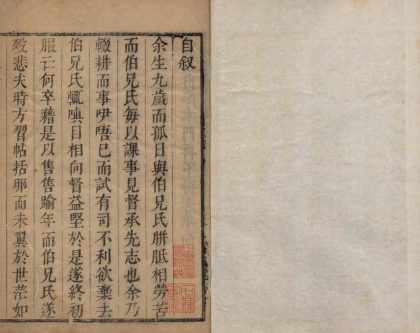 自叙
余生九歲而孤日與伯兄氏胼胝相勞苦
而伯兄氏每以課事見督承先志也余乃
輟耕而事咿唔已而試有司不利欲棄去
伯兄氏輒嗔目相向督益堅於是遂終初
服亡何卒藉是以售售踰年而伯兄氏遂
歿悲夫時方習帖括卵而未翼於世茫如